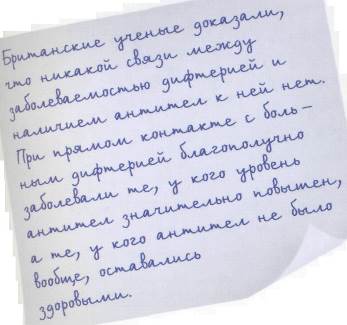 Британские ученые доказали,
что никакой связи между
заболеваемостью дифтерией и
наличием антител к ней нет.
При прямом контакте с боль-
ным дифтерией благополучно
заболевали те, у кого уровень
антител значительно повышен,
а те, у кого антител не было
вообще, оставались
здоровыми.